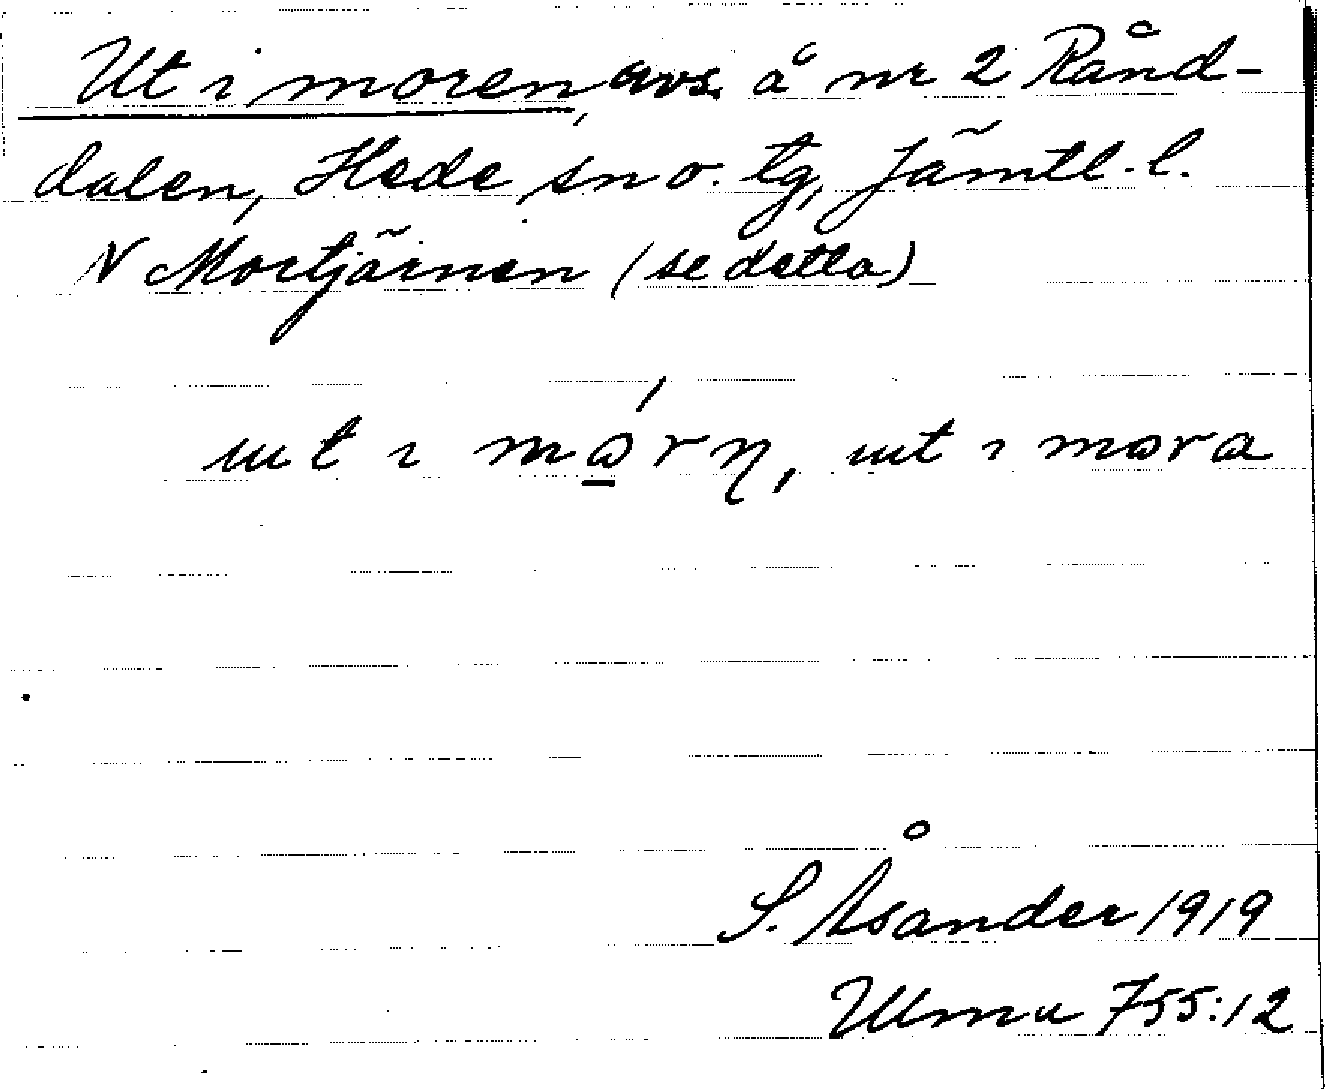 Ut i moren, avs. å nr 2 Rånd-
dalen, Hede sn o. tg, Jämtl. l.
N Mortjärnen (se detta)
ut i mó̲rn, ut i mora
S. Åsander 1919
Ulma 755:12